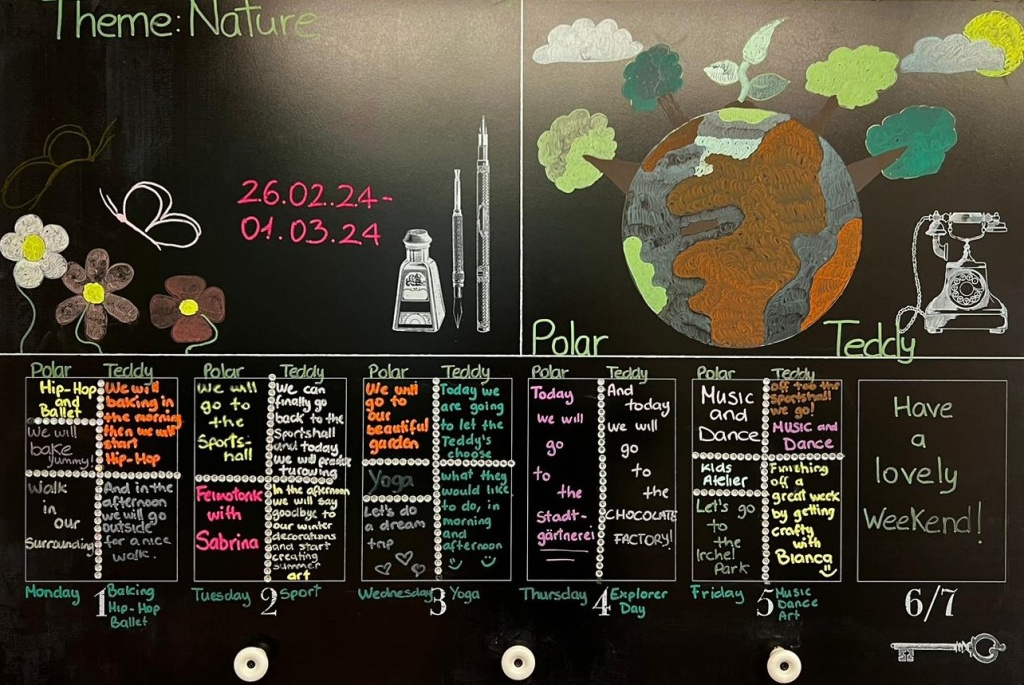 Theme: Nature
26.02.24-
01.03.24
Polar
Teddy
Polar
Hip-Hop
and
Ballet
We will
bake
yummy!
Walk
in our
Surrounding
Teddy
We will
baking in
the morning
then we will
start
Hip-Hop
And in the
afternoon
we will go
outside
for a nice
walk.
Monday
1
Baking
Hip-Hop
Ballet
Polar
We will
go to
the
Sports-
hall
Feinotorik
with
Sabrina
Teddy
We can
finally go
back to the
Sportshall
and today
we will practice
turowing
In the afternoon
we will say
goodbye to
our winter
decorations
and start
creating
summer
art
Tuesday
2
Sport
Polar
We will
go to
our
beautiful
garden
Yoga
Let's do
a dream
trip
Teddy
Today we
are going
to let the
Teddy's
choose
what they
would like
to do, in
morning
and
afternoon
Wednesday
3
Yoga
Polar
Today
we will
go
to
the
Stadt-
gärtnerei
Teddy
And
today
we will
go
to
the
CHOCOLATE
FACTORY!
Thursday
4
Explorer
Day
Polar
Music
and
Dance
Kids
Atelier
Let's go
to
the
Irchel
Park
Teddy
off to the
sportshall
we go!
Music and
Dance
Finishing
off a
great week
by getting
crafty
with
Bianca
Friday
5
Music
Dance
Art
Have
a
lovely
Weekend!
6/7